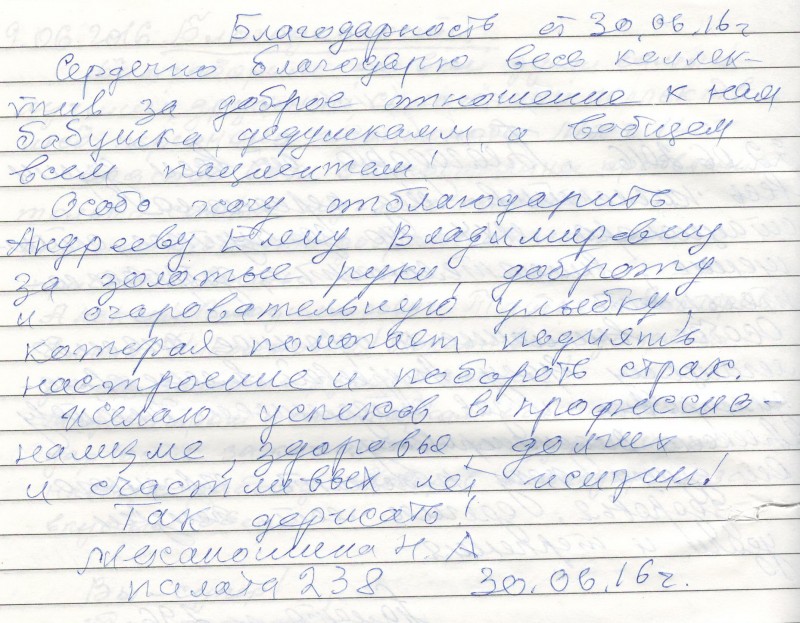 Благодарность от 30.06.16г
Сердечно благодарю весь коллек-
тив за доброе отношение к нам
бабушкам, дедушкам, а вообщем
всем пациентам!
Особо хочу отблагодарить
Андрееву Елену Владимировну
за золотые руки, доброту
и очаровательную улыбку,
которая помогает поднять
настроение и побороть страх.
Желаю успехов в профессио-
нализме, здоровья, долгих
и счастливых лет жизни!
Так держать!
Механошина Н. А
палата 238 30.06.16г.